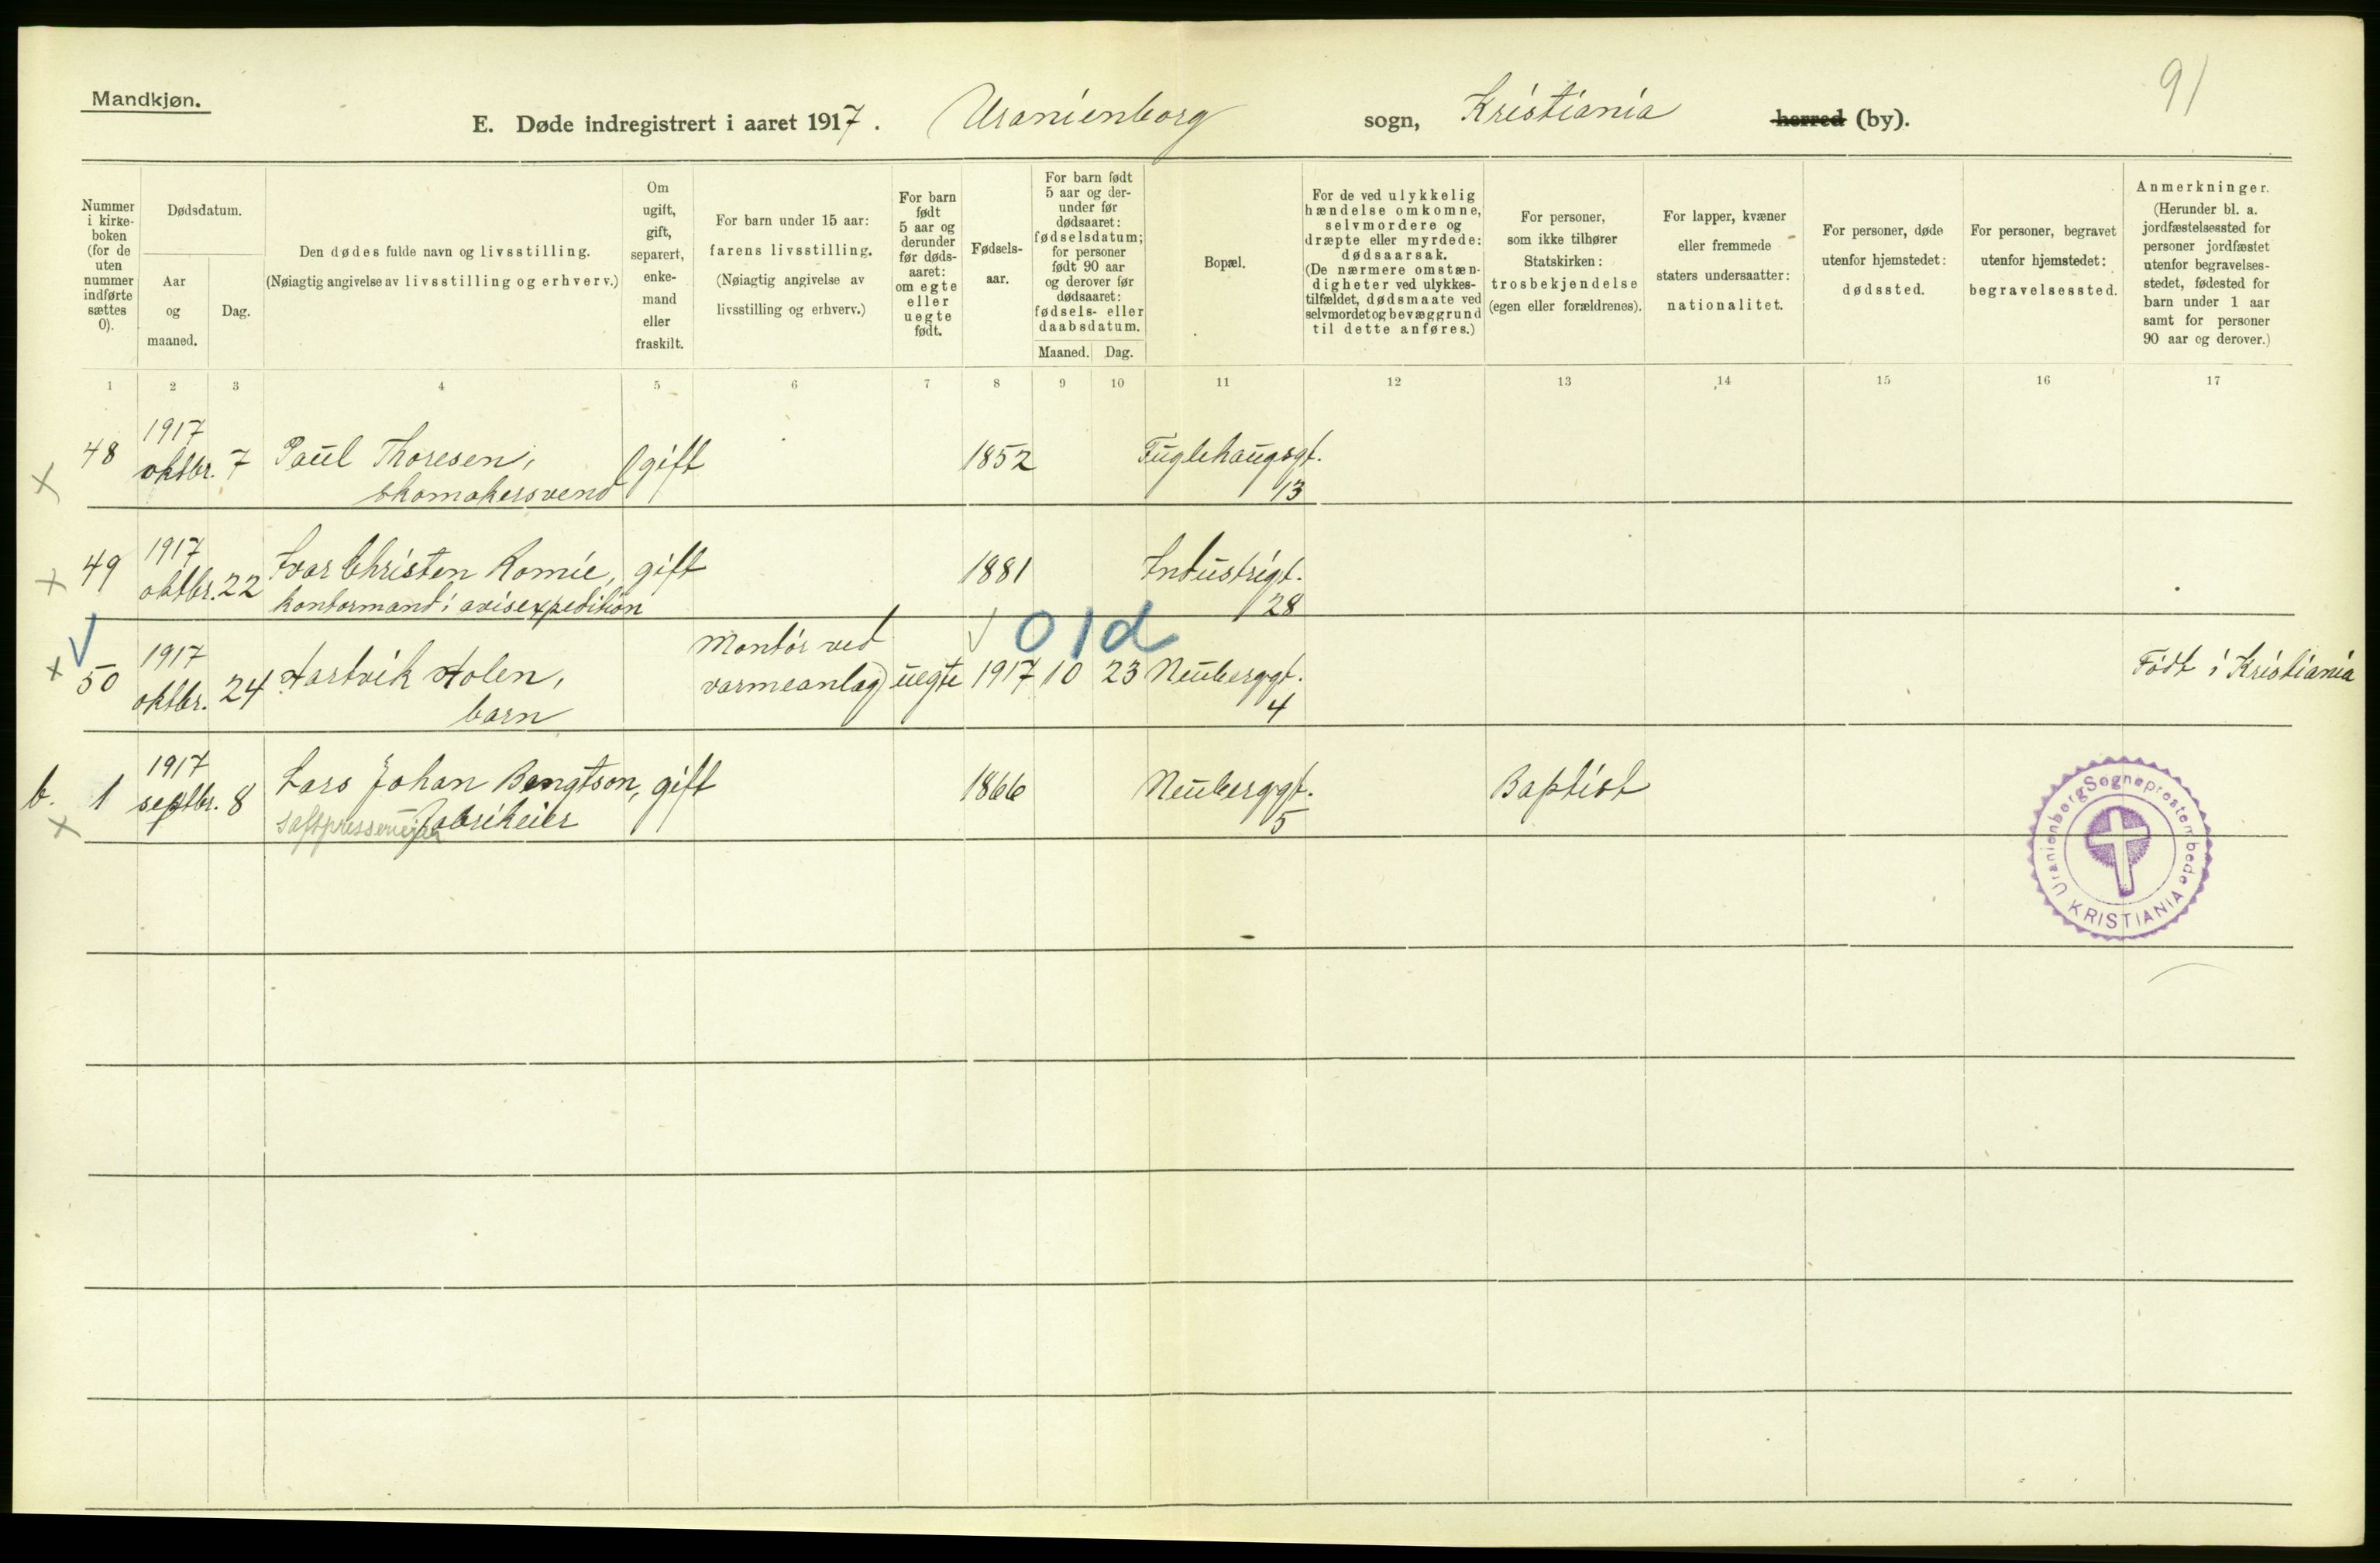 Mandkjøn.
91
E. Døde indregistrert i aaret 1917. Uranienborg sogn, Kristiania herred (by).
Nummer
i kirke-
boken
(for de
uten
nummer
indførte
sættes
0).
Dødsdatum.
Aar
og
maaned.
Dag.
Den dødes fulde navn og livsstilling.
(Nøiagtig angivelse av livsstilling og erhverv.)
Om
ugift,
gift,
separert,
enke-
mand
eller
fraskilt.
For barn under 15 aar:
farens livsstilling.
(Nøiagtig angivelse av
livsstilling og erhverv.)
For barn
født
5 aar og
derunder
før døds-
aaret:
om egte
eller
uegte
født.
Fødsels-
aar.
For barn født
5 aar og der-
under før
dødsaaret:
fødselsdatum;
for personer
født 90 aar
og derover før
dødsaaret:
fødsels- eller
daabsdatum.
Maaned. Dag.
Bopæl.
For de ved ulykkelig
hændelse omkomne,
selvmordere og
dræpte eller myrdede:
dødsaarsak.
(De nærmere omstæn-
digheter ved ulykkes-
tilfældet, dødsmaate ved
selvmordet og bevæggrund
til dette anføres.)
For personer,
som ikke tilhører
Statskirken:
trosbekjendelse
(egen eller forældrenes).
For lapper, kvæner
eller fremmede
staters undersaatter:
nationalitet.
For personer, døde
utenfor hjemstedet:
dødssted.
For personer, begravet
utenfor hjemstedet:
begravelsessted.
Anmerkninger.
(Herunder bl. a.
jordfæstelsessted for
personer jordfæstet
utenfor begravelses-
stedet, fødested for
barn under 1 aar
samt for personer
90 aar og derover.)
1 2 3 4 5 6 7 8 9 10 11 12 13 14 15 16 17
1917
48 oktbr. 7 Paul Thoresen, gift 1852 Fuglehaugsgt.
x skomakersvend 13
1917
x 49 oktbr. 22 Ivar Christen Romie, gift 1881 Industrigt.
kontormand i avisexpedition 28
√ 1917 Montør ved √ 01d
x 50 oktbr. 24 Hartvik Holen, varmeanlæg uegte 1917 10 23 Neuberggt. Født i Kristiania
barn 4
1917
b. 1 septbr. 8 Lars Johan Bengtson, gift 1866 Neuberggt. Baptist
x saftpresserieier fabrikeier 5
Uranienborg Sogneprestembede
KRISTIANIA